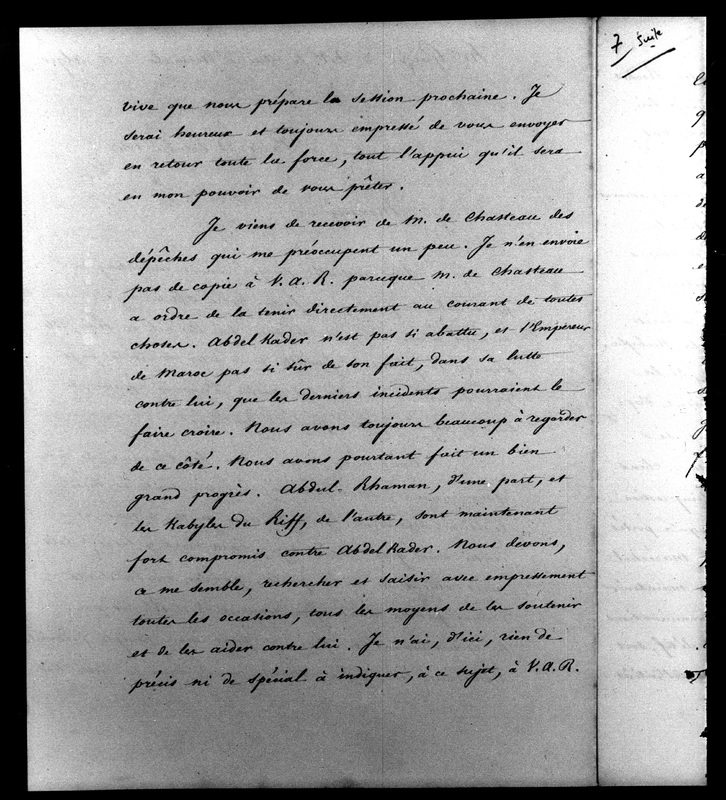 7 Suite
vive que nous prépare la session prochaine. Je
serai heureux et toujours empressé de vous envoyer
en retour toute la force, tout l'appui qu'il sera
en mon pouvoir de vous prêter.
Je viens de recevoir de M. de Chasteau des
dépêches qui me préoccupent un peu. Je n'en envoie
pas de copie à V.A.R. parceque M. de Chasteau
a ordre de la tenir directement au courant de toutes
choses. Abdel Kader n'est pas si abattu, et l'Empereur
de Maroc pas si sûr de son fait, dans sa lutte
contre lui, que les derniers incidents pourraient le
faire croire. Nous avons toujours beaucoup à regarder
de ce côté. Nous avons pourtant fait un bien
grand progrès. Abdul-Rhaman, d'une part, et
les Kabyles du Riff, de l'autre, sont maintenant
fort compromis contre Abdel Kader. Nous devons,
ce me semble, rechercher et saisir avec empressement
toutes les occasions, tous les moyens de les soutenir
et de les aider contre lui. Je n'ai, d'ici, rien de
précis ni de spécial à indiquer, à ce sujet, à V.A.R.